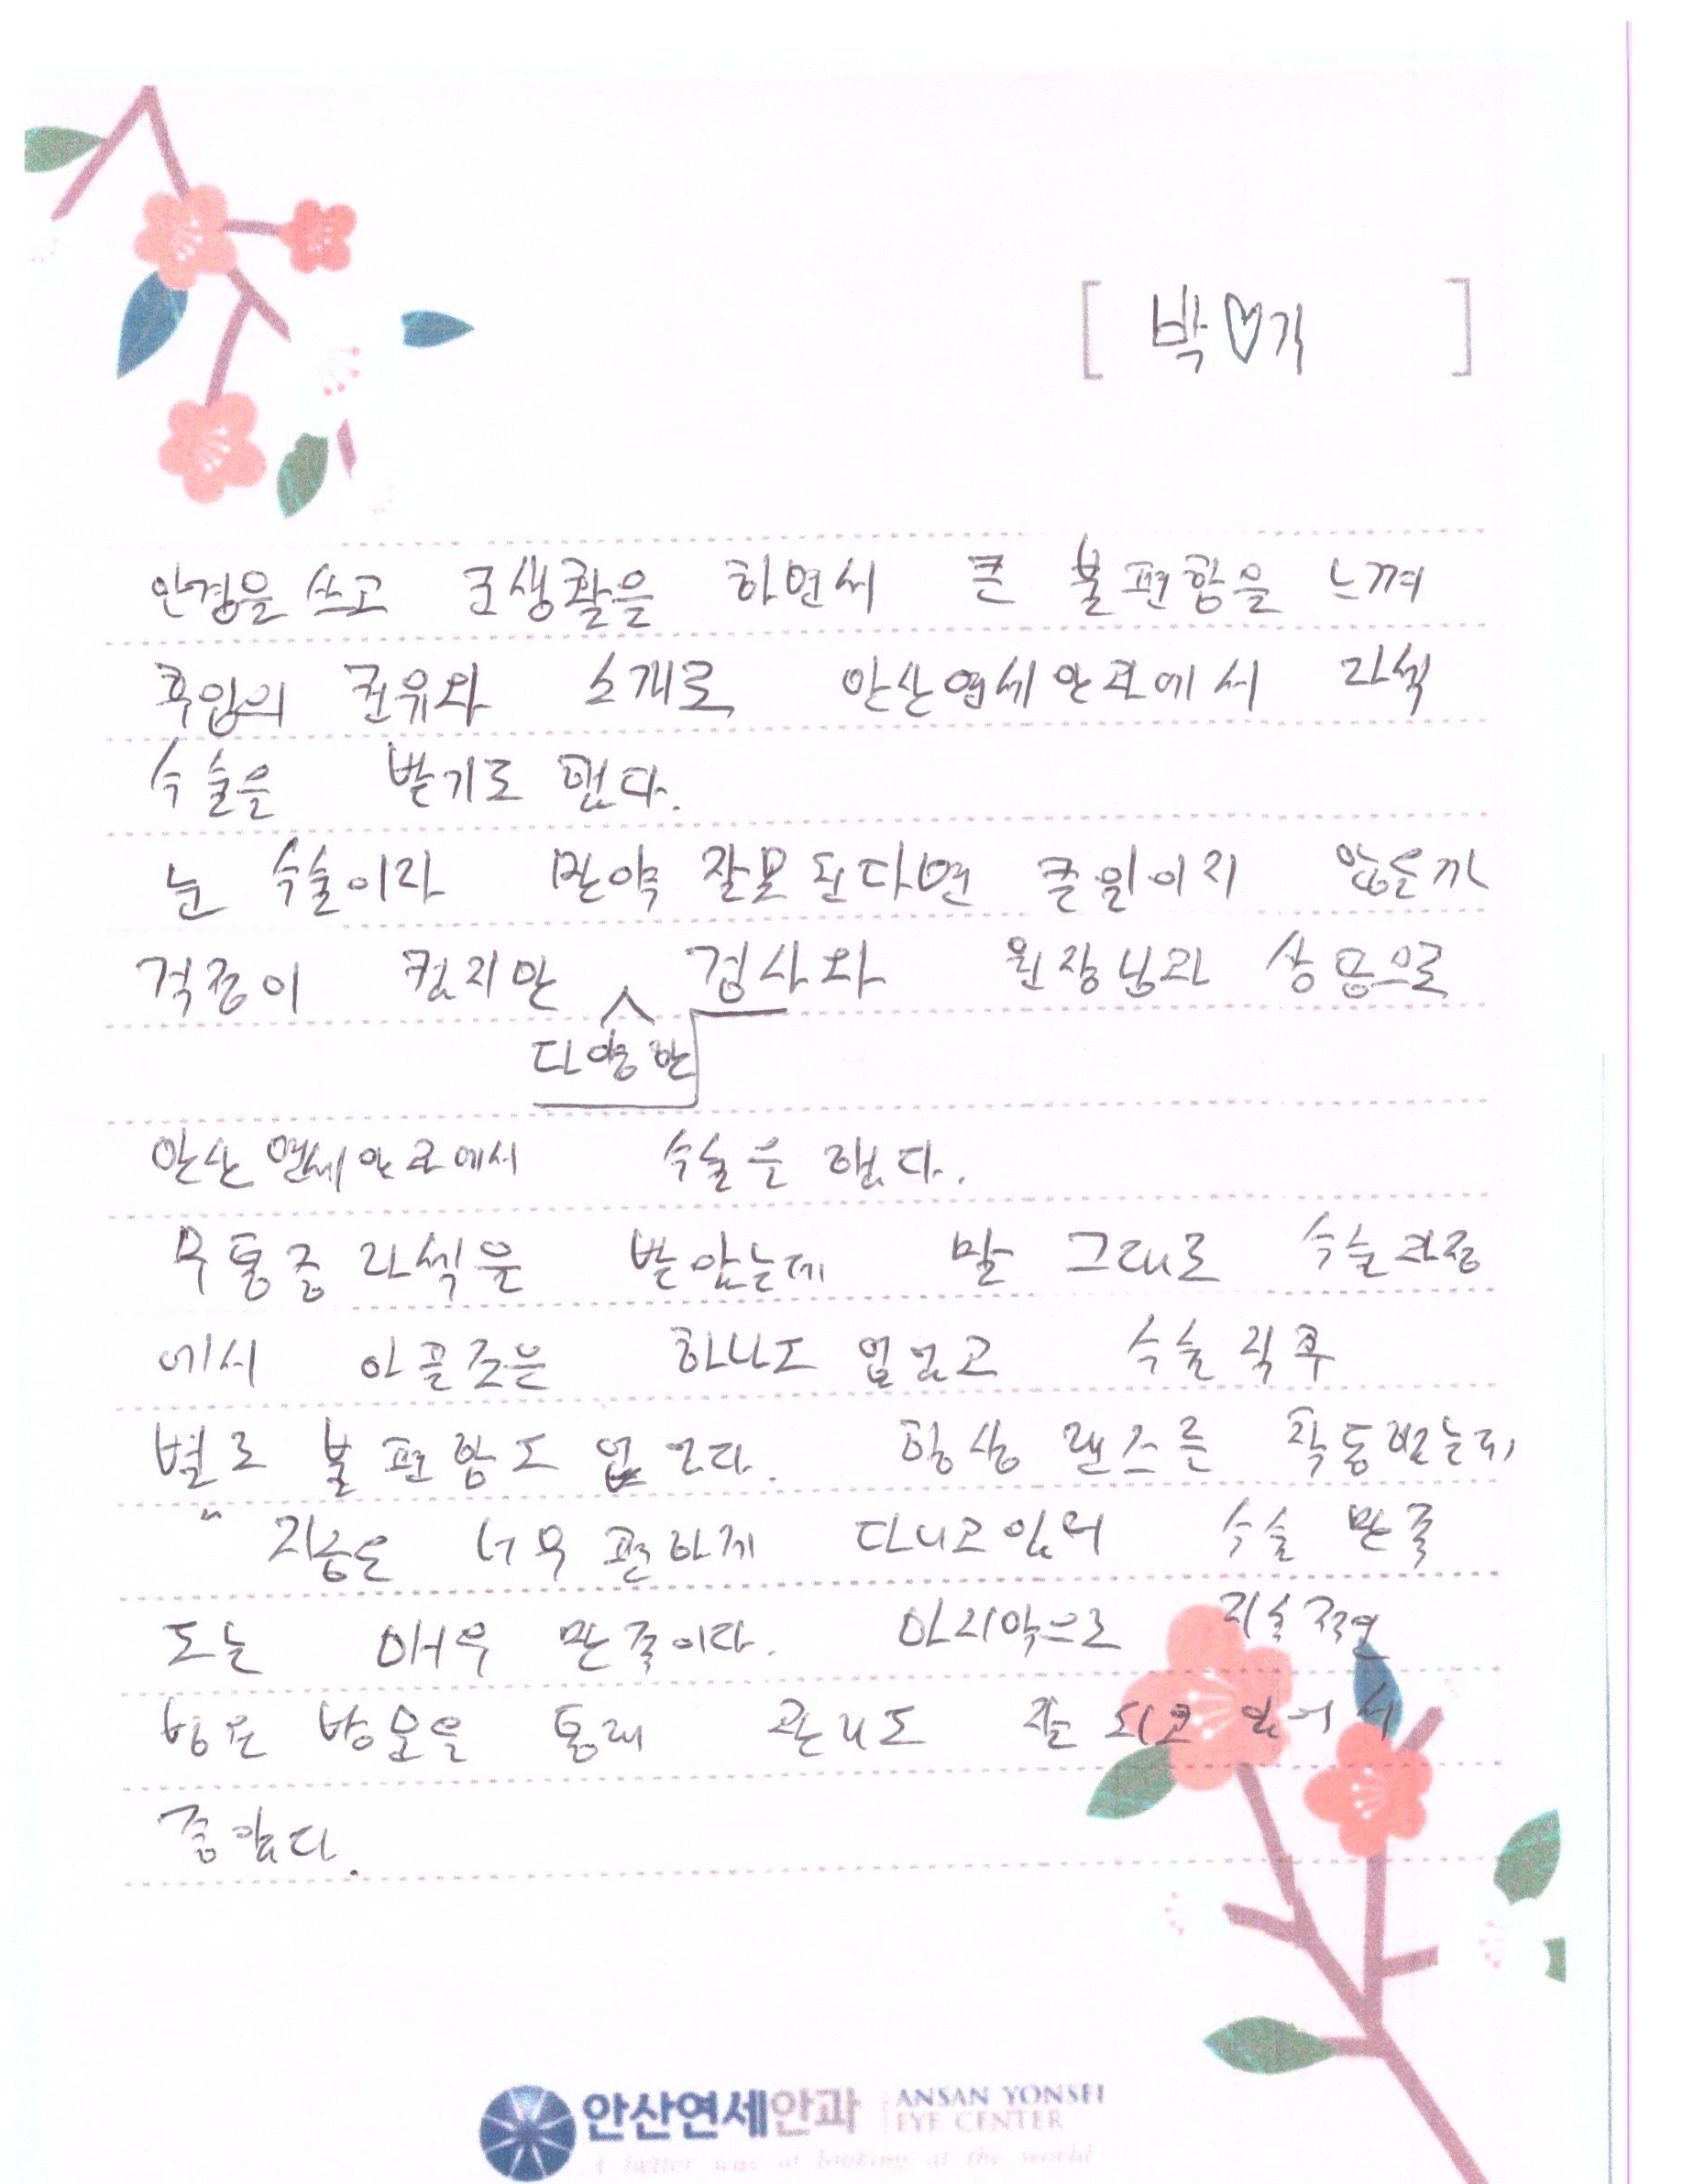 [ 박♡기 ]
안경을 쓰고 군생활을 하면서 큰 불편함을 느껴
후임의 권유와 소개로 안산연세안과에서 라섹
수술을 받기로 했다.
눈 수술이라 만약 잘못된다면 큰일이지 않을까
걱정이 컸지만 검사와 원장님과 상담으로
다양한
안산연세안과에서 수술을 했다.
무통증 라섹을 받았는데 말 그대로 수술과정
에서 아픔은 하나도 없었고 수술 직후
별로 불편함도 없었다. 항상 렌즈를 착용했는데,
지금은 너무 편하게 다니고있어 수술 만족
도는 매우 만족이다. 마지막으로
병원 방문을 통해 관리도 잘 되고 있어서
좋았다.
안산연세안과 ANSAN YONSEI
EYE CENTER
A better way of looking at the world